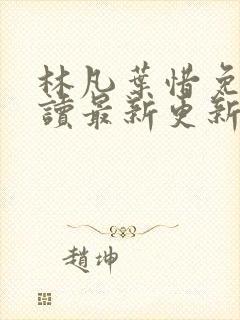 林凡葉惜免
讀最新更新
趙坤